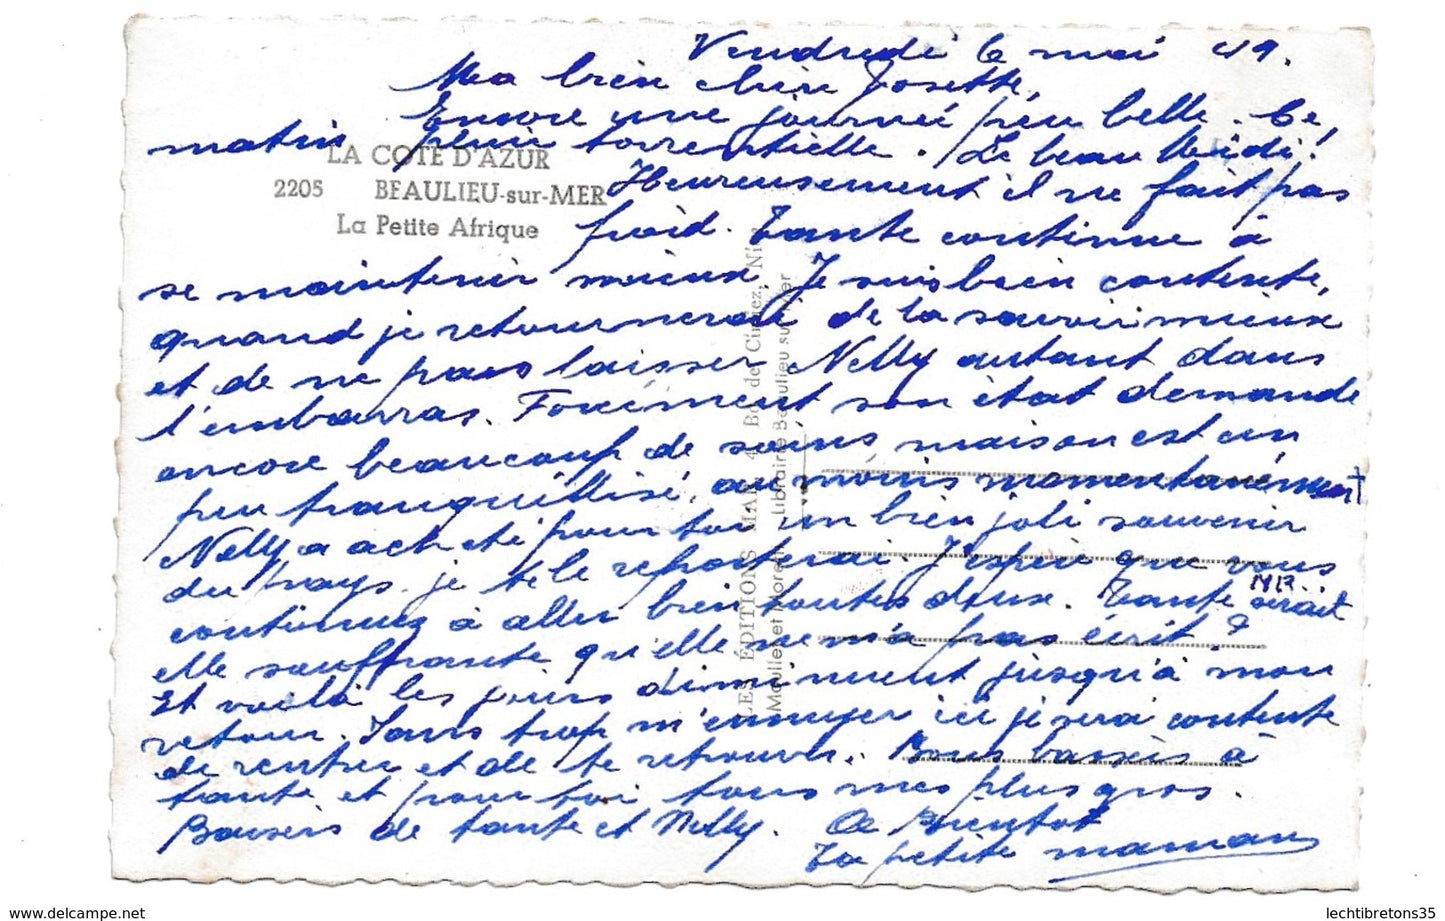 Vendredi 6 mai 49.
Ma bien chère Josette,
Encore une journée peu belle. Ce
matin pluie torrentielle. Le beau Midi!
LA COTE D'AZUR
2205 BEAULIEU-sur-MER
La Petite Afrique
Heureusement il ne fait pas
froid. Tante continue à
se maintenir mieux, Je suis bien contente,
quand je retournerai de la savoir mieux
et de ne pas laisser Nelly autant dans
l'embarras. Forcément son état demande
encore beaucoup de soins, maison est un
peu tranquillisé, au moins momentanément
Nelly a acheté pour toi un bien joli souvenir
du pays. je te le reporterai. J'espère que vous
continuez à aller bien toutes deux. Tante serait
elle souffrante qu'elle ne m'a pas écrit?
Et voilà les jours diminuent jusqu'à mon
retour. Sans trop m'ennuyer ici je serai contente
de rentrer et de te retrouver. Bons baisers à
tante et pour toi tous mes plus gros.
Baisers de tante et Nelly. A Bientot
Ta petite maman
LES ÉDITIONS MAR, 4, Bd de Cimiez, Nice
Moullet et Morel Librairie Beaulieu sur Mer
www.delcampe.net
lechtibretons35